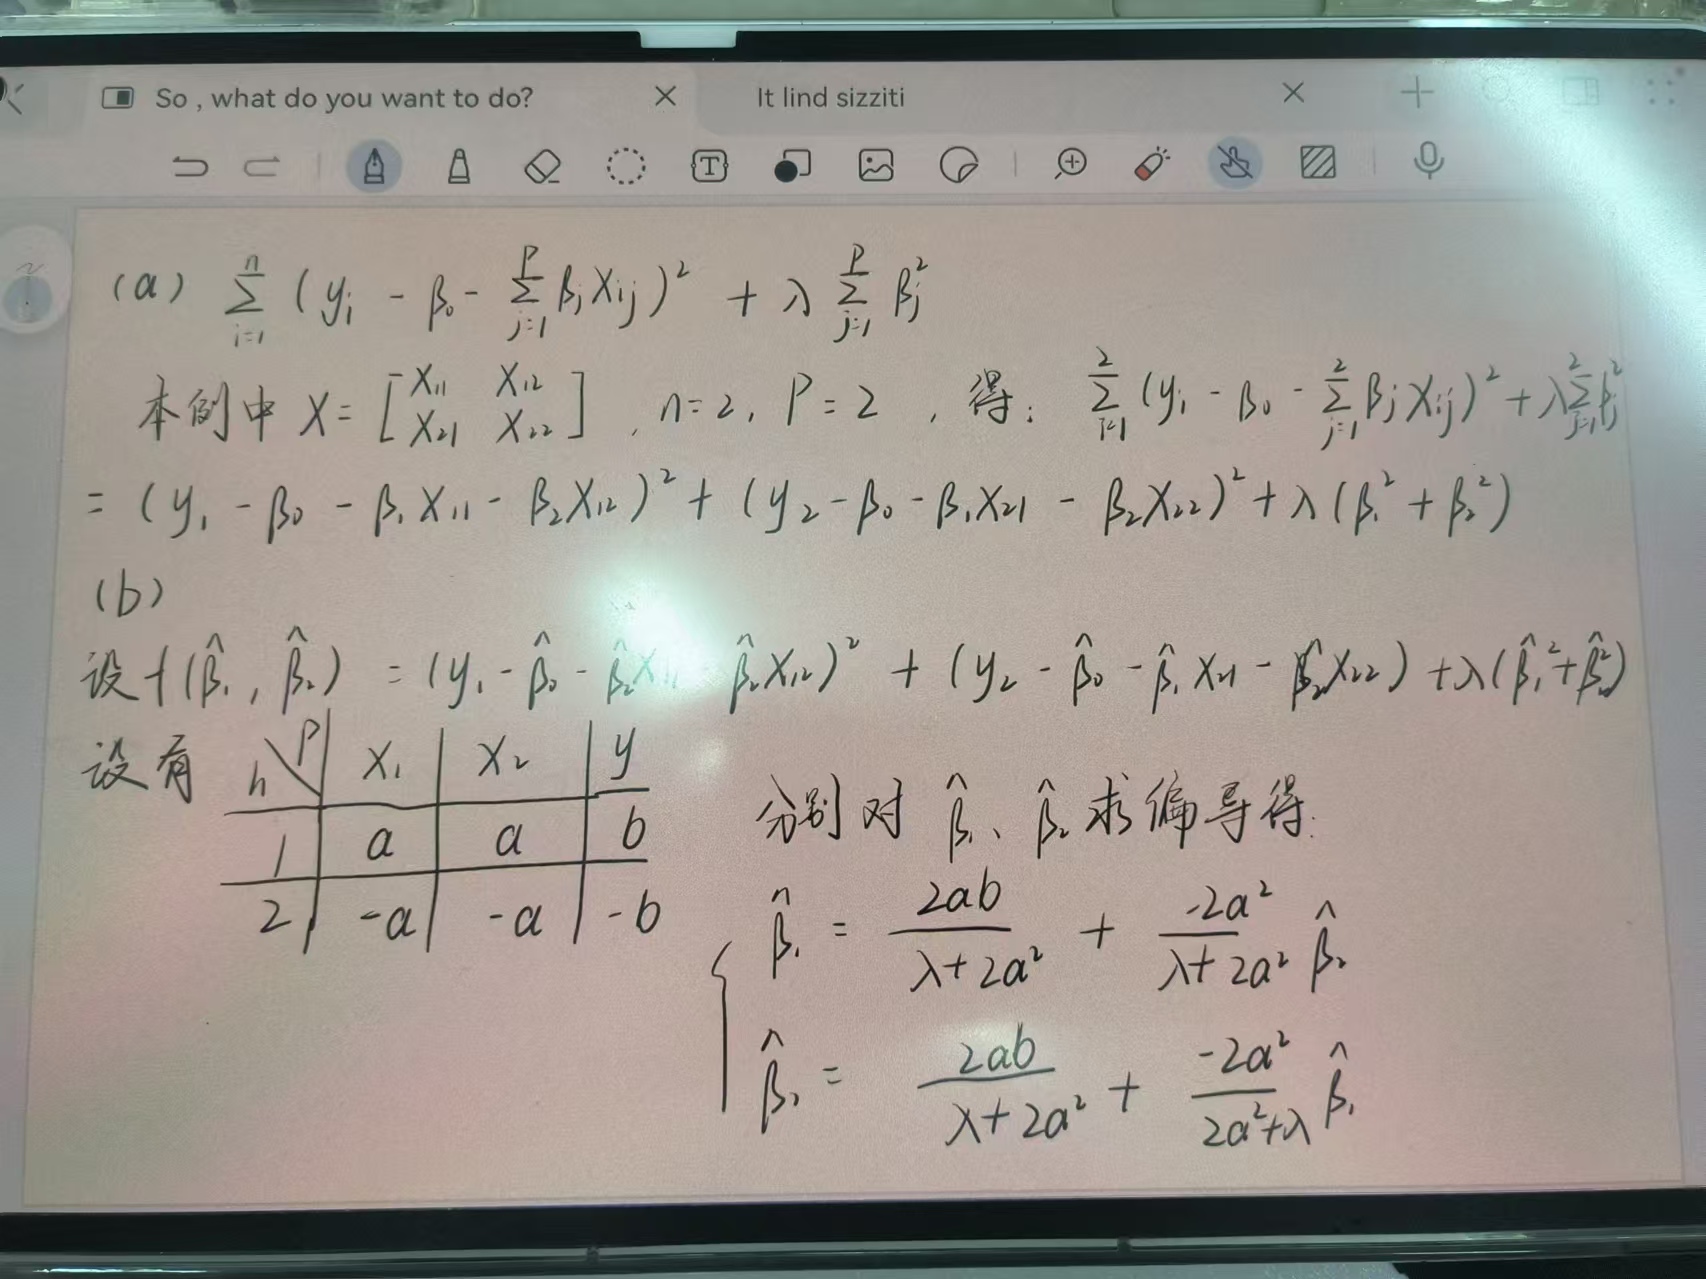 So , what do you want to do?
It lind sizziti
(a) $\sum_{i=1}^{n} (y_i - \beta_0 - \sum_{j=1}^{p} \beta_j x_{ij})^2 + \lambda \sum_{j=1}^{p} \beta_j^2$
本例中 $X = \begin{bmatrix} x_{11} & x_{12} \\ x_{21} & x_{22} \end{bmatrix}$, n=2, P=2, 得: $\sum_{i=1}^{2} (y_i - \beta_0 - \sum_{j=1}^{2} \beta_j x_{ij})^2 + \lambda \sum_{j=1}^{2} \beta_j^2$
$= (y_1 - \beta_0 - \beta_1 x_{11} - \beta_2 x_{12})^2 + (y_2 - \beta_0 - \beta_1 x_{21} - \beta_2 x_{22})^2 + \lambda (\beta_1^2 + \beta_2^2)$
(b)
设 $f(\hat{\beta}_1, \hat{\beta}_2) = (y_1 - \hat{\beta}_0 - \hat{\beta}_2 x_{11} - \hat{\beta}_2 x_{12})^2 + (y_2 - \hat{\beta}_0 - \hat{\beta}_1 x_{21} - \hat{\beta}_2 x_{22}) + \lambda (\hat{\beta}_1^2 + \hat{\beta}_2^2)$
设有
n\P x₁ x₂ y
1 a a b
2 -a -a -b
分别对 $\hat{\beta}_1$、$\hat{\beta}_2$ 求偏导得:
$\hat{\beta}_1 = \frac{2ab}{\lambda + 2a^2} + \frac{-2a^2}{\lambda + 2a^2} \hat{\beta}_2$
$\hat{\beta}_2 = \frac{2ab}{\lambda + 2a^2} + \frac{-2a^2}{2a^2 + \lambda} \hat{\beta}_1$